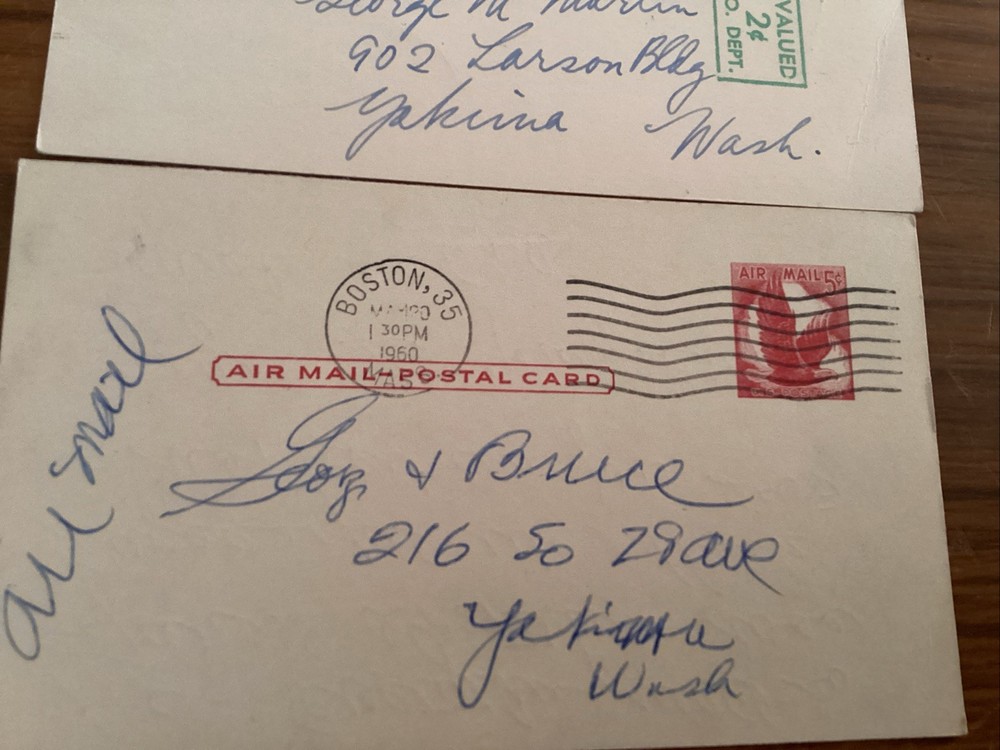 George M Martin
902 Larson Bldg
Yakima Wash.
VALUED
2¢
O. DEPT.
BOSTON, 35
1 30 PM
1960
MASS
AIR MAIL 5¢
AIR MAIL-POSTAL CARD
air mail
& Bruce
216 So
Yakima
Wash